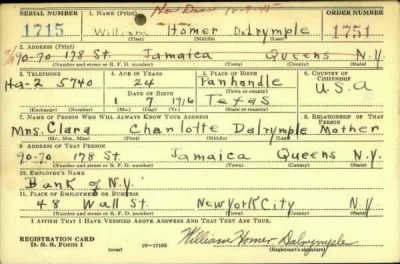 SERIAL NUMBER 1. NAME (Print) ORDER NUMBER
1715 William Homer Dalrymple 1751
(First) (Middle) (Last)
2. ADDRESS (Print)
90-70 178 St. Jamaica Queens N.Y.
(Number and street or R. F. D. number) (Town) (County) (State)
3. TELEPHONE 4. AGE IN YEARS 5. PLACE OF BIRTH 6. COUNTRY OF CITIZENSHIP
Ha-2 5740 24 Panhandle U.S.A
DATE OF BIRTH (Town or county)
7 1916 Texas
(Exchange) (Number) (Mo.) (Day) (Yr.) (State or country)
7. NAME OF PERSON WHO WILL ALWAYS KNOW YOUR ADDRESS 8. RELATIONSHIP OF THAT PERSON
Mrs. Clara Charlotte Dalrymple Mother
(Mr., Mrs., Miss) (First) (Middle) (Last)
9. ADDRESS OF THAT PERSON
90-70 178 St. Jamaica Queens N.Y.
(Number and street or R. F. D. number) (Town) (County) (State)
10. EMPLOYER'S NAME
Bank of N.Y.
11. PLACE OF EMPLOYMENT OR BUSINESS
48 Wall St. New York City N.Y.
(Number and street or R. F. D. number) (Town) (County) (State)
I AFFIRM THAT I HAVE VERIFIED ABOVE ANSWERS AND THAT THEY ARE TRUE.
REGISTRATION CARD William Homer Dalrymple
D. S. S. Form 1 (over) 16-17105 (Registrant's signature)